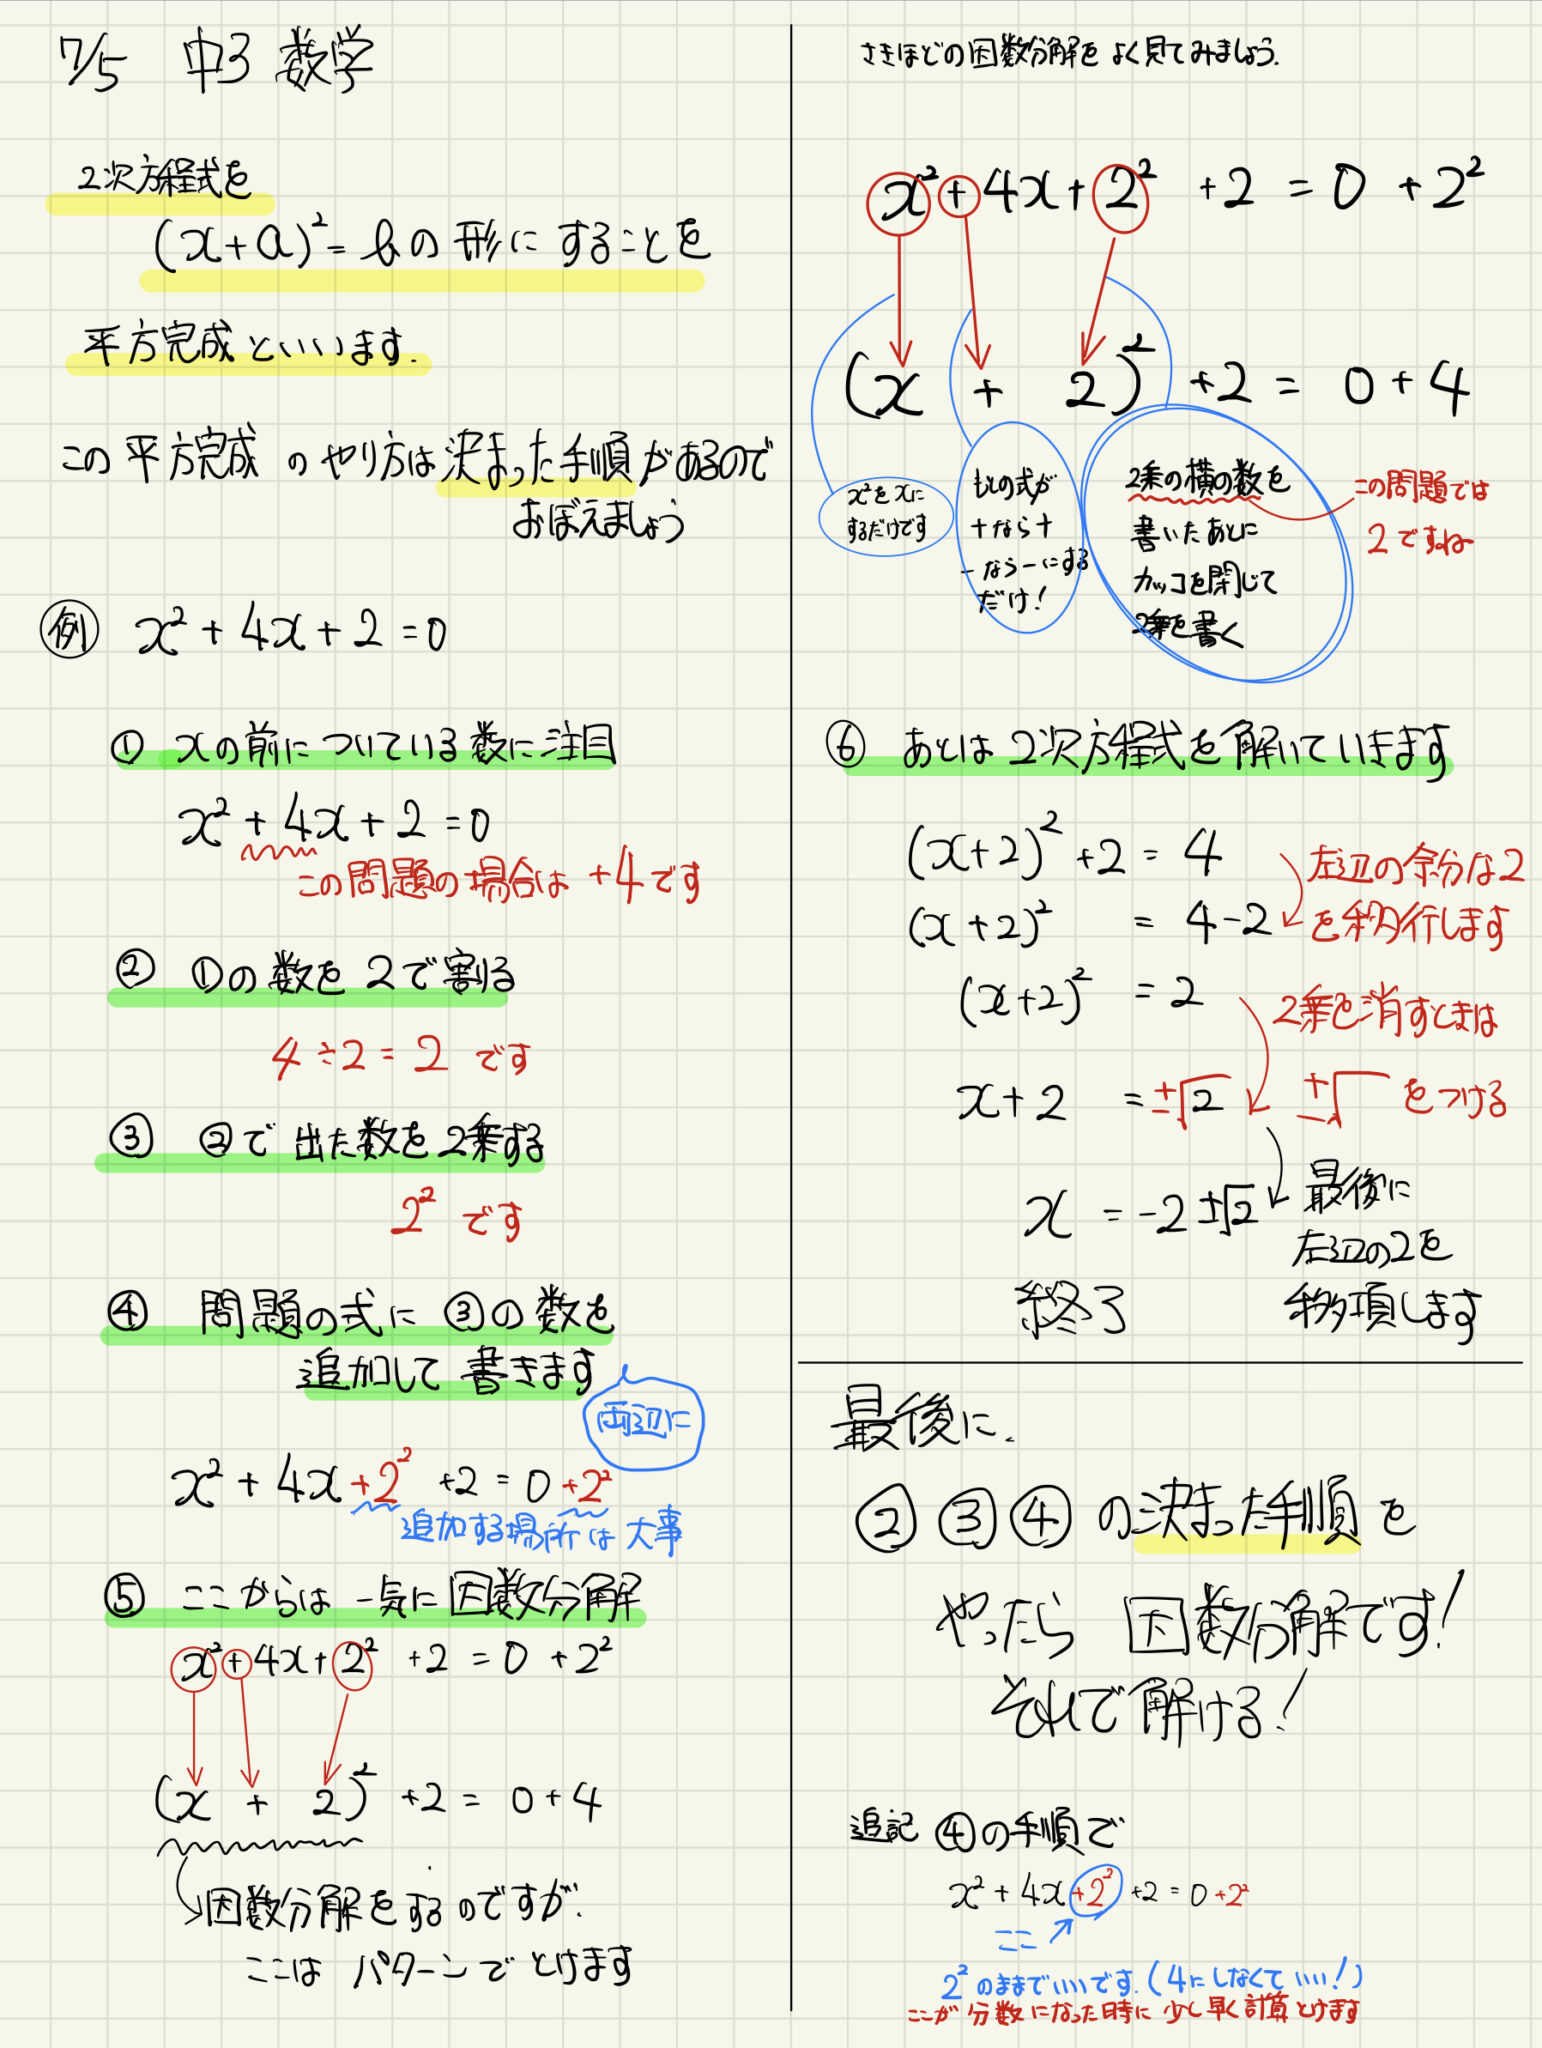 7/5 中3 数学
2次方程式を
(x+a)²=bの形にすることを
平方完成といいます.
この平方完成のやり方は決まった手順があるので
おぼえましょう
例 x²+4x+2=0
① xの前についている数に注目
x²+4x+2=0
この問題の場合は+4です
② ①の数を2で割る
4÷2=2です
③ ②で出た数を2乗する
2²です
④ 問題の式に③の数を
追加して書きます
両辺に
x²+4x+2²+2=0+2²
追加する場所は大事
⑤ ここからは一気に因数分解
x²+4x+2²+2=0+2²
(x+2)²+2=0+4
因数分解をするのですが.
ここはパターンでとけます
さきほどの因数分解をよく見てみましょう.
x²+4x+2²+2=0+2²
(x+2)²+2=0+4
x²をxに
するだけです
もとの式が
+なら+
-なら-にする
だけ!
2乗の横の数を
書いたあとに
カッコを閉じて
2乗を書く
この問題では
2ですね
⑥ あとは2次方程式を解いていきます
(x+2)²+2=4
左辺の余分な2
(x+2)²=4-2
を移行します
(x+2)²=2
2乗を消すときは
x+2=±√2
±√をつける
x=-2±√2
最後に
左辺の2を
移項します
終了
最後に.
②③④の決まった手順を
やったら因数分解です!
それで解ける!
追記 ④の手順で
x²+4x+2²+2=0+2²
ここ
2²のままでいいです.(4にしなくていい!)
ここが分数になった時に少し早く計算とけます